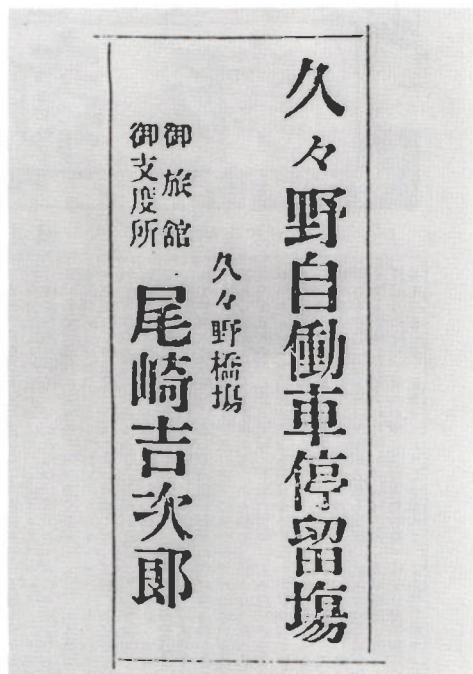 久々野自働車停留塲
久々野橋塲
御旅舘
御支度所
尾崎吉次郎